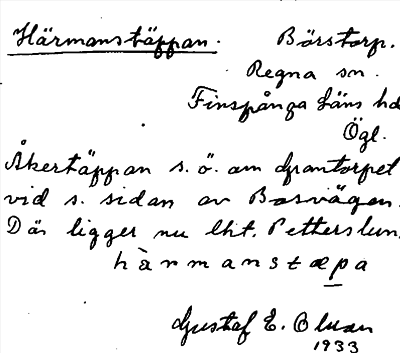 Härmanstäppan. Börstorp.
Regna sn.
Finspånga läns hd
Ögl.
Åkertäppan s.ö. om Grantorpet
vid s. sidan av Bosvägen.
Där ligger nu lht. Petterslun
härmanstæpa
Gustaf E. Oluan
1933